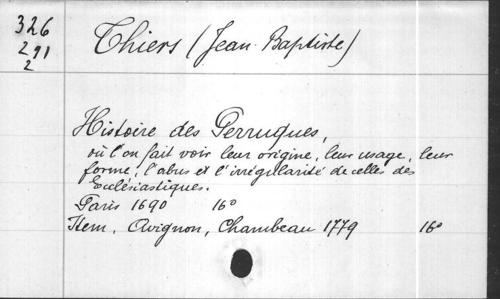 326
291
2
Thiers (Jean-Baptiste)
Histoire des Perruques,
où l'on fait voir leur origine, leur usage, leur
forme, l'abus et l'irrégularité de celles des
Ecclésiastiques.
Paris 1690 16°
Item, Avignon, Chambeau 1779 16°